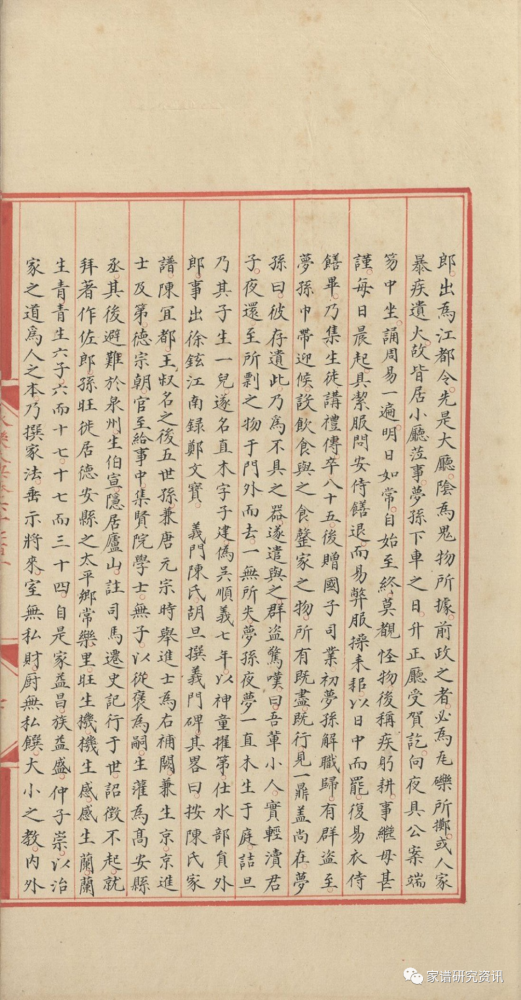 郎出為江都令先是大廳陰為鬼物所據前政之者必為瓦礫所擲或人家
暴疾遺火故皆居小廳蒞事夢孫下車之日升正廳受賀訖向夜具公案端
笏中坐誦周易一遍明日如常自始至終莫覩怪物後稱疾躬耕事繼母甚
謹每日晨起具絜服問安侍饍退而易弊服操耒耜以日中而罷復易衣侍
饍畢乃集生徒講禮傳卒八十五後贈國子司業初夢孫解職歸有群盜至
夢孫巾帶迎候設飲食與之食罄家之物所有既盡既行見一鼎盖尚在夢
孫曰彼存遺此乃為不具之器遂遣與之群盜驚嘆曰吾輩小人實輕瀆君
子夜還至所剽之物于門外而去一無所失夢孫夜夢一直木生于庭詰旦
乃其子生一兒遂名直木字子建偽吳順義七年以神童擢第仕水部員外
郎事出徐鉉江南録鄭文寶　義門陳氏胡旦撰義門碑其畧曰按陳氏家
譜陳宜都王叔名之後五世孫兼唐元宗時舉進士為右補闕兼生京京進
士及第德宗朝官至給事中集賢院學士無子以從褒為嗣生灌為高安縣
丞其後避難於泉州生伯宣隱居廬山註司馬遷史記行于世詔徵不起就
拜著作佐郎孫旺徙居德安縣之太平鄉常樂里旺生機機生感感生蘭蘭
生青青生六子六而十七十七而三十四自是家益昌族益盛仲子崇以治
家之道為人之本乃撰家法垂示將來室無私財厨無私饌大小之教內外
家谱研究资讯